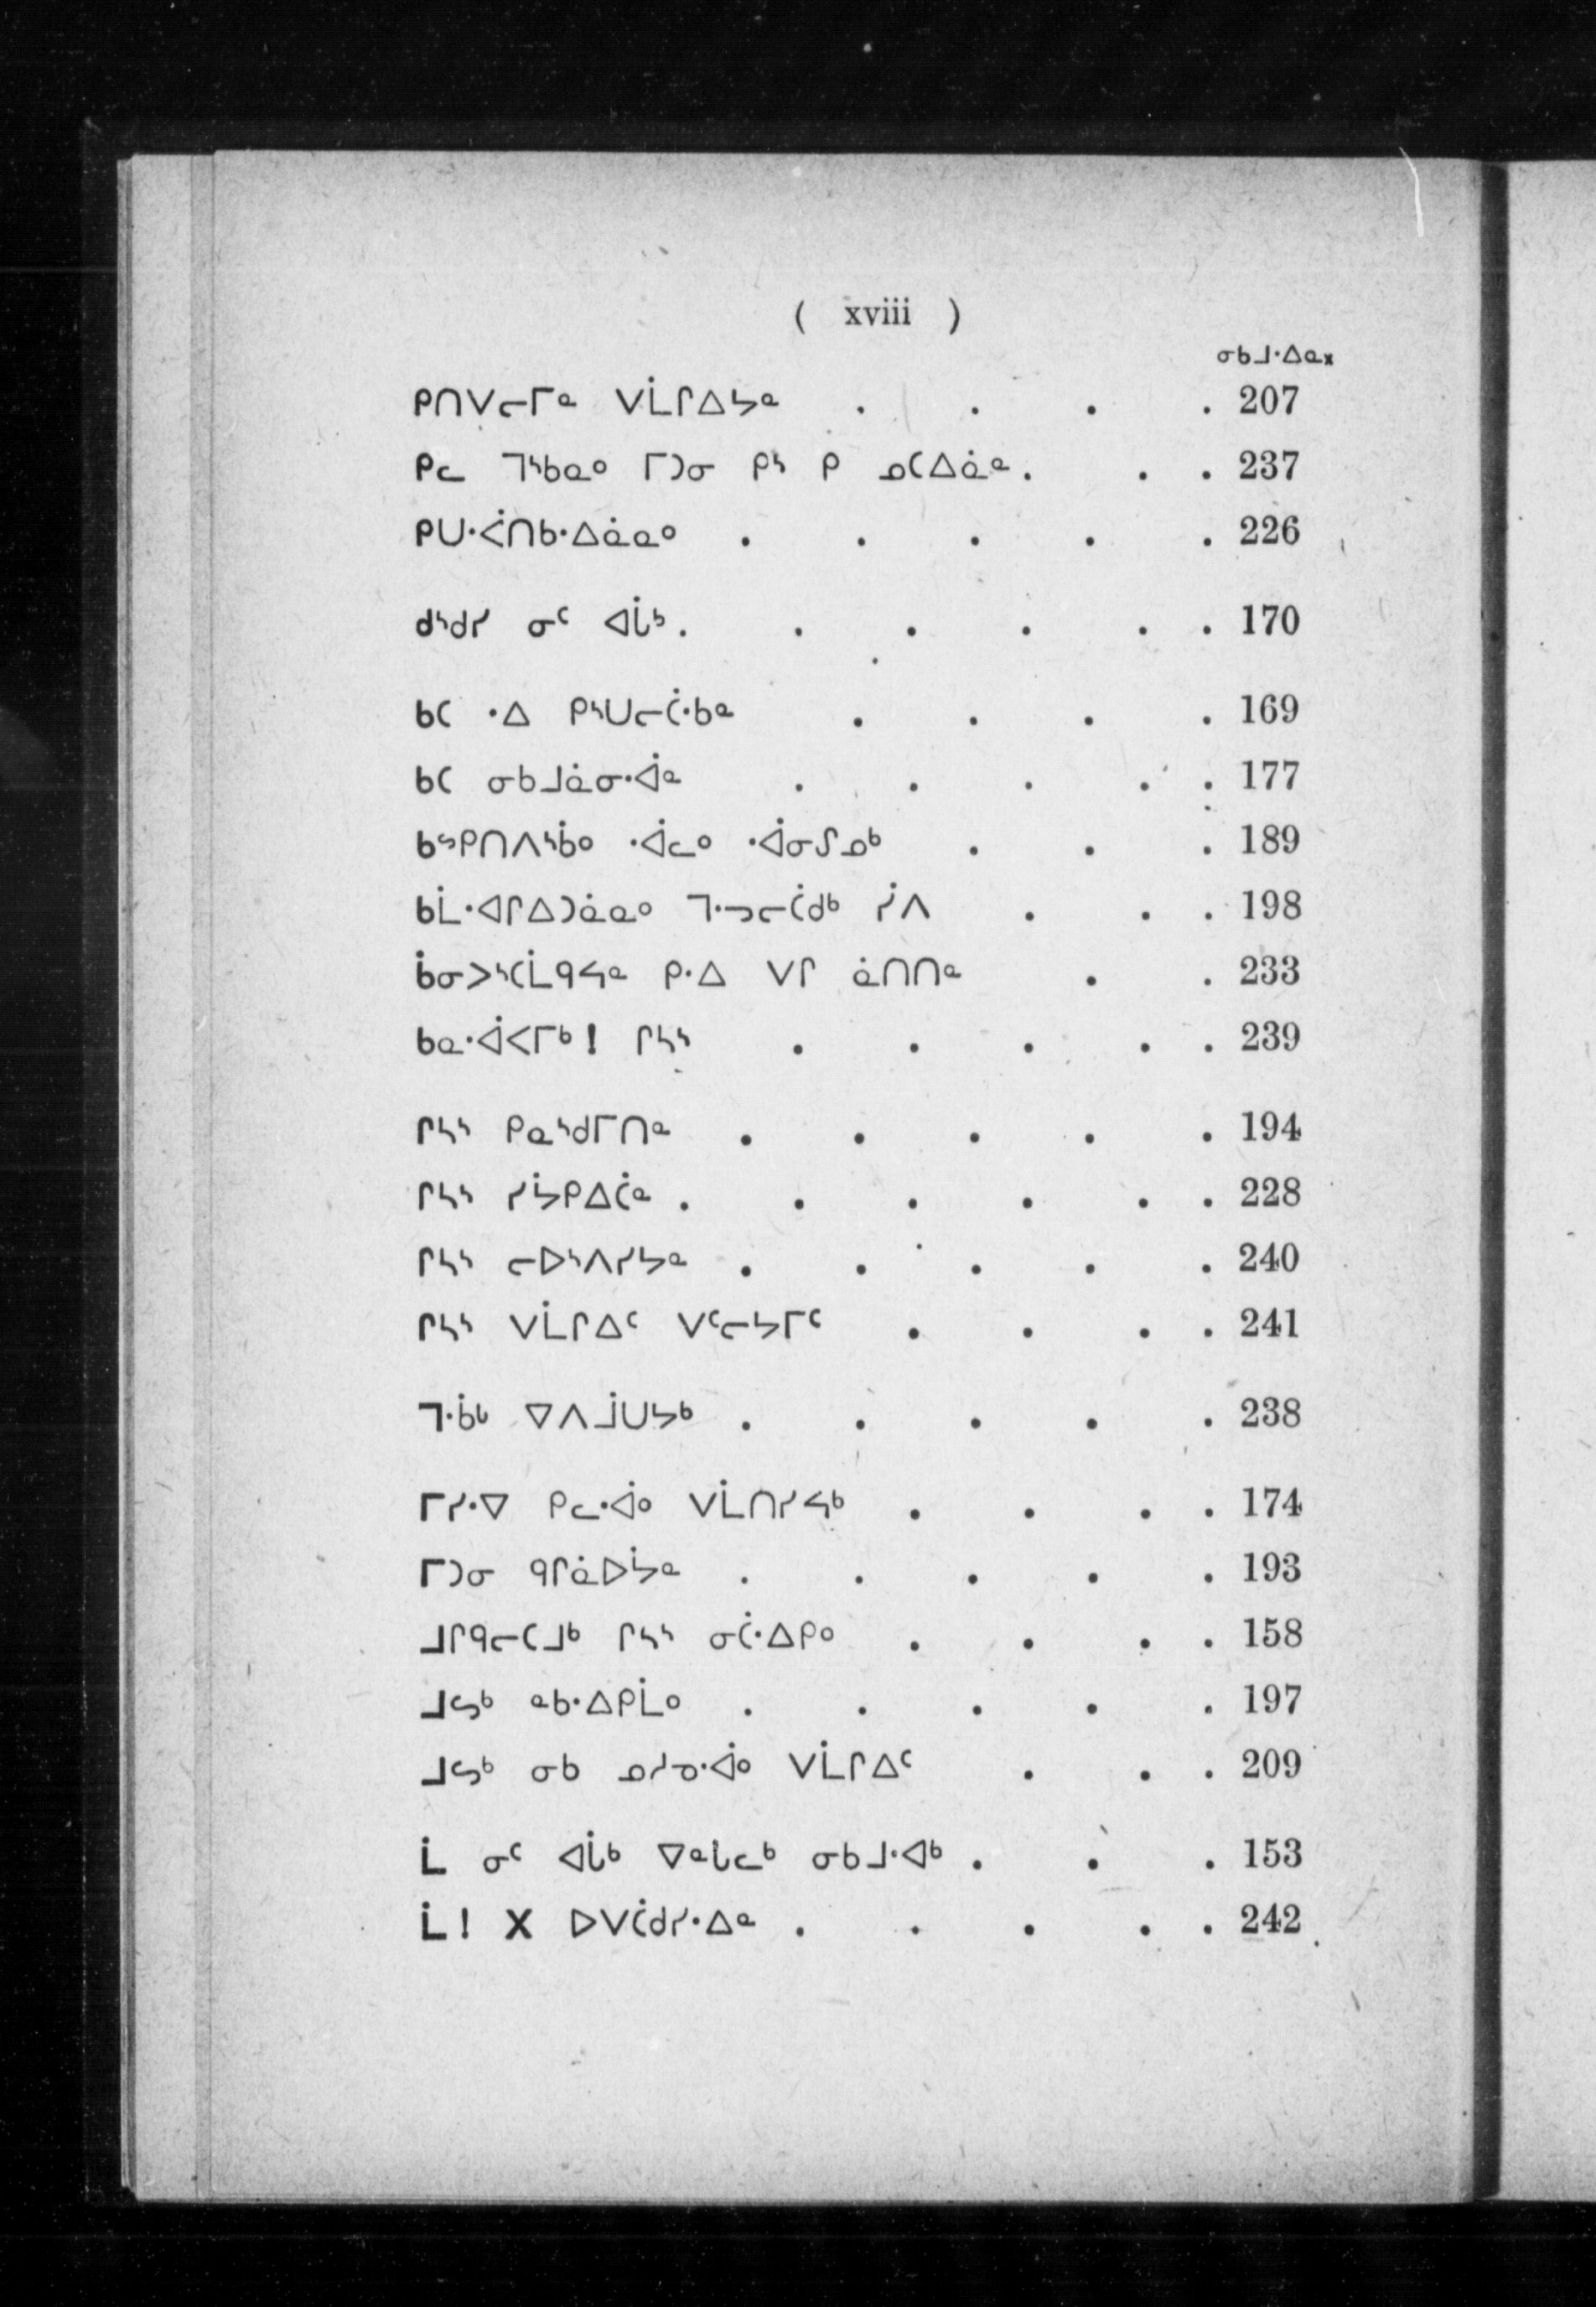 ( xviii )
ᓂᑲᒧᐧᐃᓇ᙮
ᑭᑎᐯᓕᒥᓐ ᐯᒫᒋᐃᔭᓐ . . . . 207
ᑭᓚ ᒣᔅᑲᓇᐤ ᒥᑐᓂ ᑭᔅ ᑭ ᓄᑕᐃᓈᓐ . . . 237
ᑭᑌᐧᐹᑎᑲᐧᐃᓈᓇᐤ . . . . . 226
ᑯᔅᑯᓯ ᓂᑦ ᐊᒑᒃ . . . . . . 170
ᑲᑕ ᐧᐃ ᑭᔅᑌᓕᑖᐧᑲᓐ . . . . 169
ᑲᑕ ᓂᑲᒧᓈᓂᐧᐋᓐ . . . . . 177
ᑲᔥᑭᑎᐱᔅᑳᐤ ᐧᐋᓚᐤ ᐧᐋᓂᔑᓄᒃ . . . 189
ᑲᒫᐧᐊᒋᐃᑐᓈᓇᐤ ᒣᐧᓗᓕᑖᑯᒃ ᓰᐱ . . . 198
ᑳᓂᐳᔅᑕᒫᑫᔭᓐ ᑭᐧᐃ ᐯᒋ ᓈᑎᑎᓐ . . 233
ᑲᓇᐧᐋᐸᒥᒃ ! ᒋᓴᔅ . . . . . 239
ᒋᓴᔅ ᑭᓇᔅᑯᒥᑎᓐ . . . . . 194
ᒋᓴᔅ ᓯᔮᑭᐃᑖᓐ . . . . . . 228
ᒋᓴᔅ ᓕᐅᔅᐱᓯᔭᓐ . . . . . 240
ᒋᓴᔅ ᐯᒫᒋᐃᑦ ᐯᑦᓕᔭᒥᑦ . . . . 241
ᒣᐧᑳᒡ ᐁᐱᒨᑌᔭᒃ . . . . . 238
ᒥᓯᐧᐁ ᑭᓚᐧᐋᐤ ᐯᒫᑎᓯᔦᒃ . . . . 174
ᒥᑐᓂ ᑫᒋᓈᐅᔮᓐ . . . . . 193
ᒧᒋᑫᓕᑕᒧᒃ ᒋᓴᔅ ᓂᑖᐧᐃᑭᐤ . . . . 158
ᒧᔕᒃ ᓐᑲᐧᐃᑭᒫᐤ . . . . . 197
ᒧᔕᒃ ᓂᑲ ᓄᓱᓀᐧᐋᐤ ᐯᒫᒋᐃᑦ . . . 209
ᒫ ᓂᑦ ᐊᒑᒃ ᐁᓐᒐᓚᒃ ᓂᑲᒧᐧᐊᒃ . . . 153
ᒫ ! X ᐅᐯᑖᑯᓯᐧᐃᓐ . . . . . 242